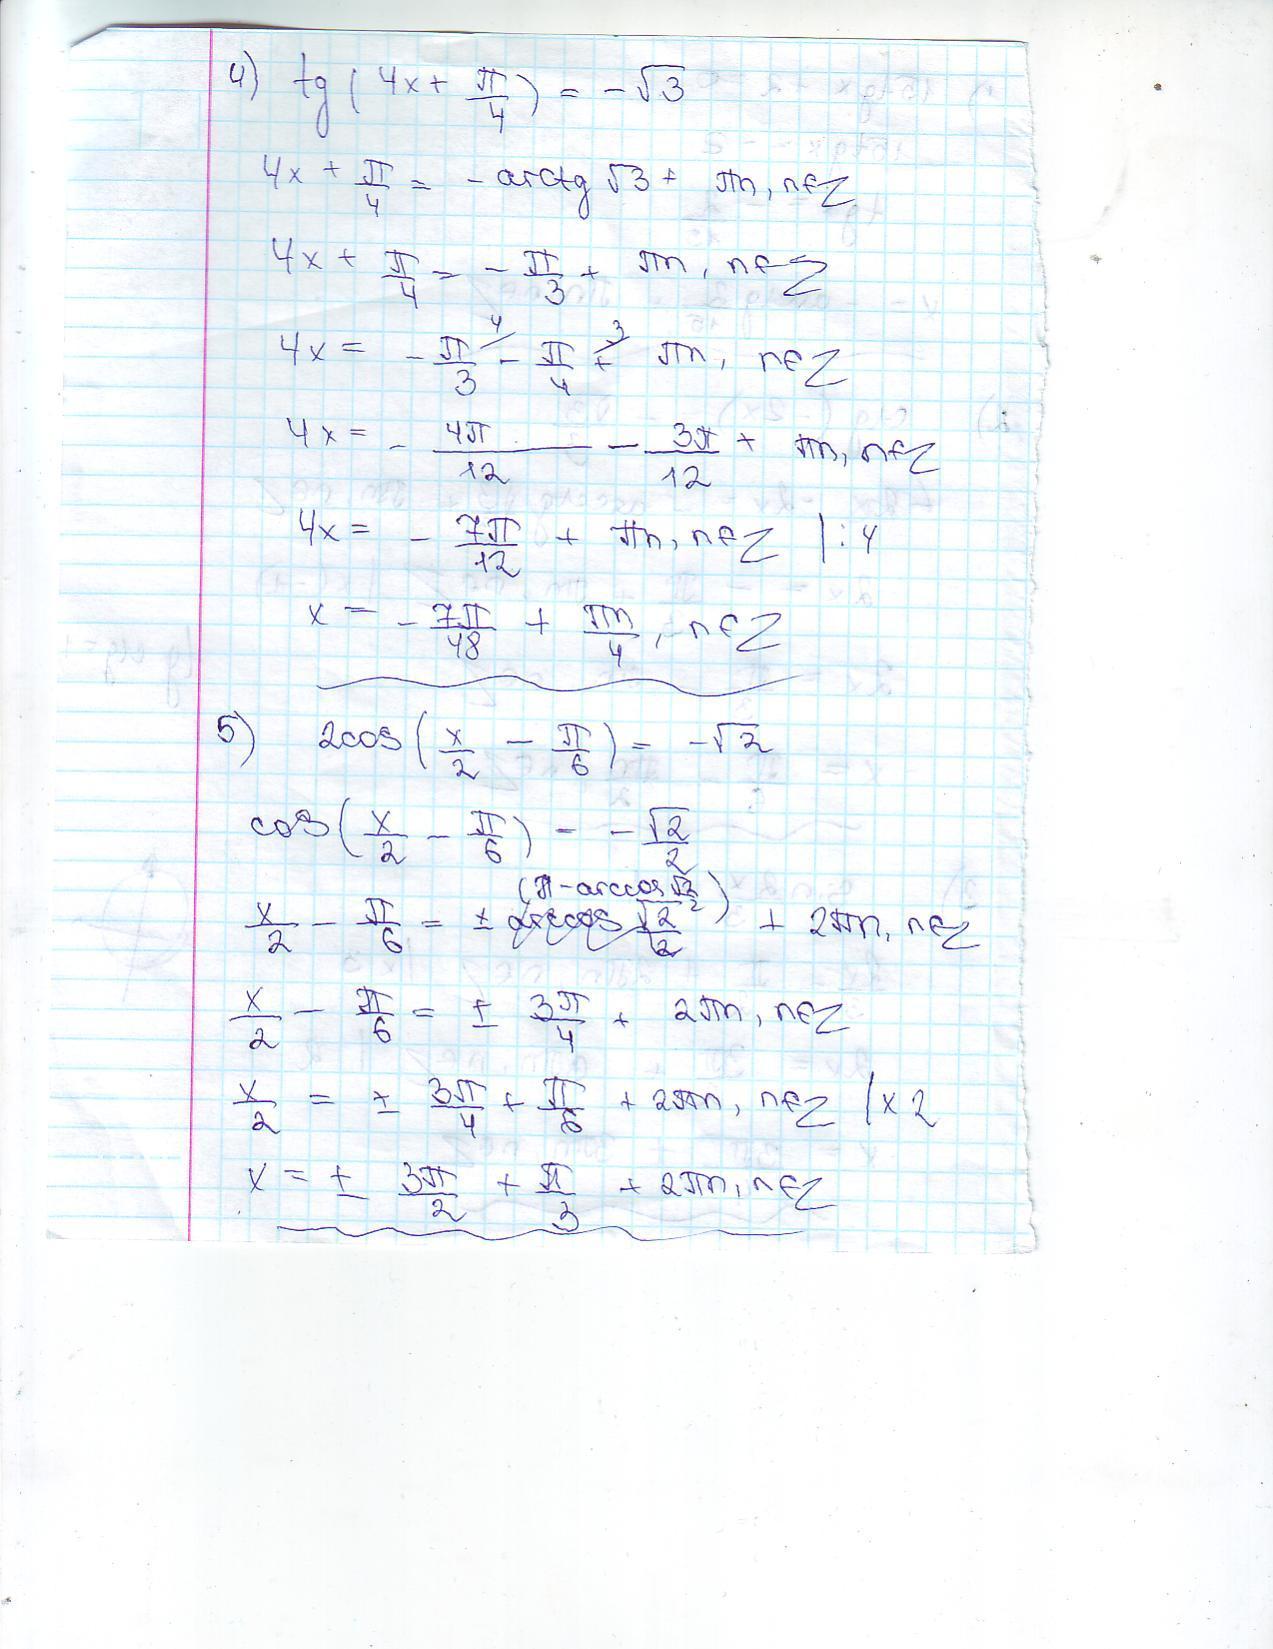 4) tg(4x + π/4) = -√3
4x + π/4 = -arctg √3 + πn, n∈Z
4x + π/4 = -π/3 + πn, n∈Z
4x = -π/3 ⁄4 - π/4 ⁄3 + πn, n∈Z
4x = -4π/12 - 3π/12 + πn, n∈Z
4x = -7π/12 + πn, n∈Z |:4
x = -7π/48 + πn/4, n∈Z
5) 2cos(x/2 - π/6) = -√2
cos(x/2 - π/6) = -√2/2
x/2 - π/6 = ± (π-arccos √2/2) + 2πn, n∈Z
x/2 - π/6 = ± 3π/4 + 2πn, n∈Z
x/2 = ± 3π/4 + π/6 + 2πn, n∈Z |x2
x = ± 3π/2 + π/3 + 2πn, n∈Z